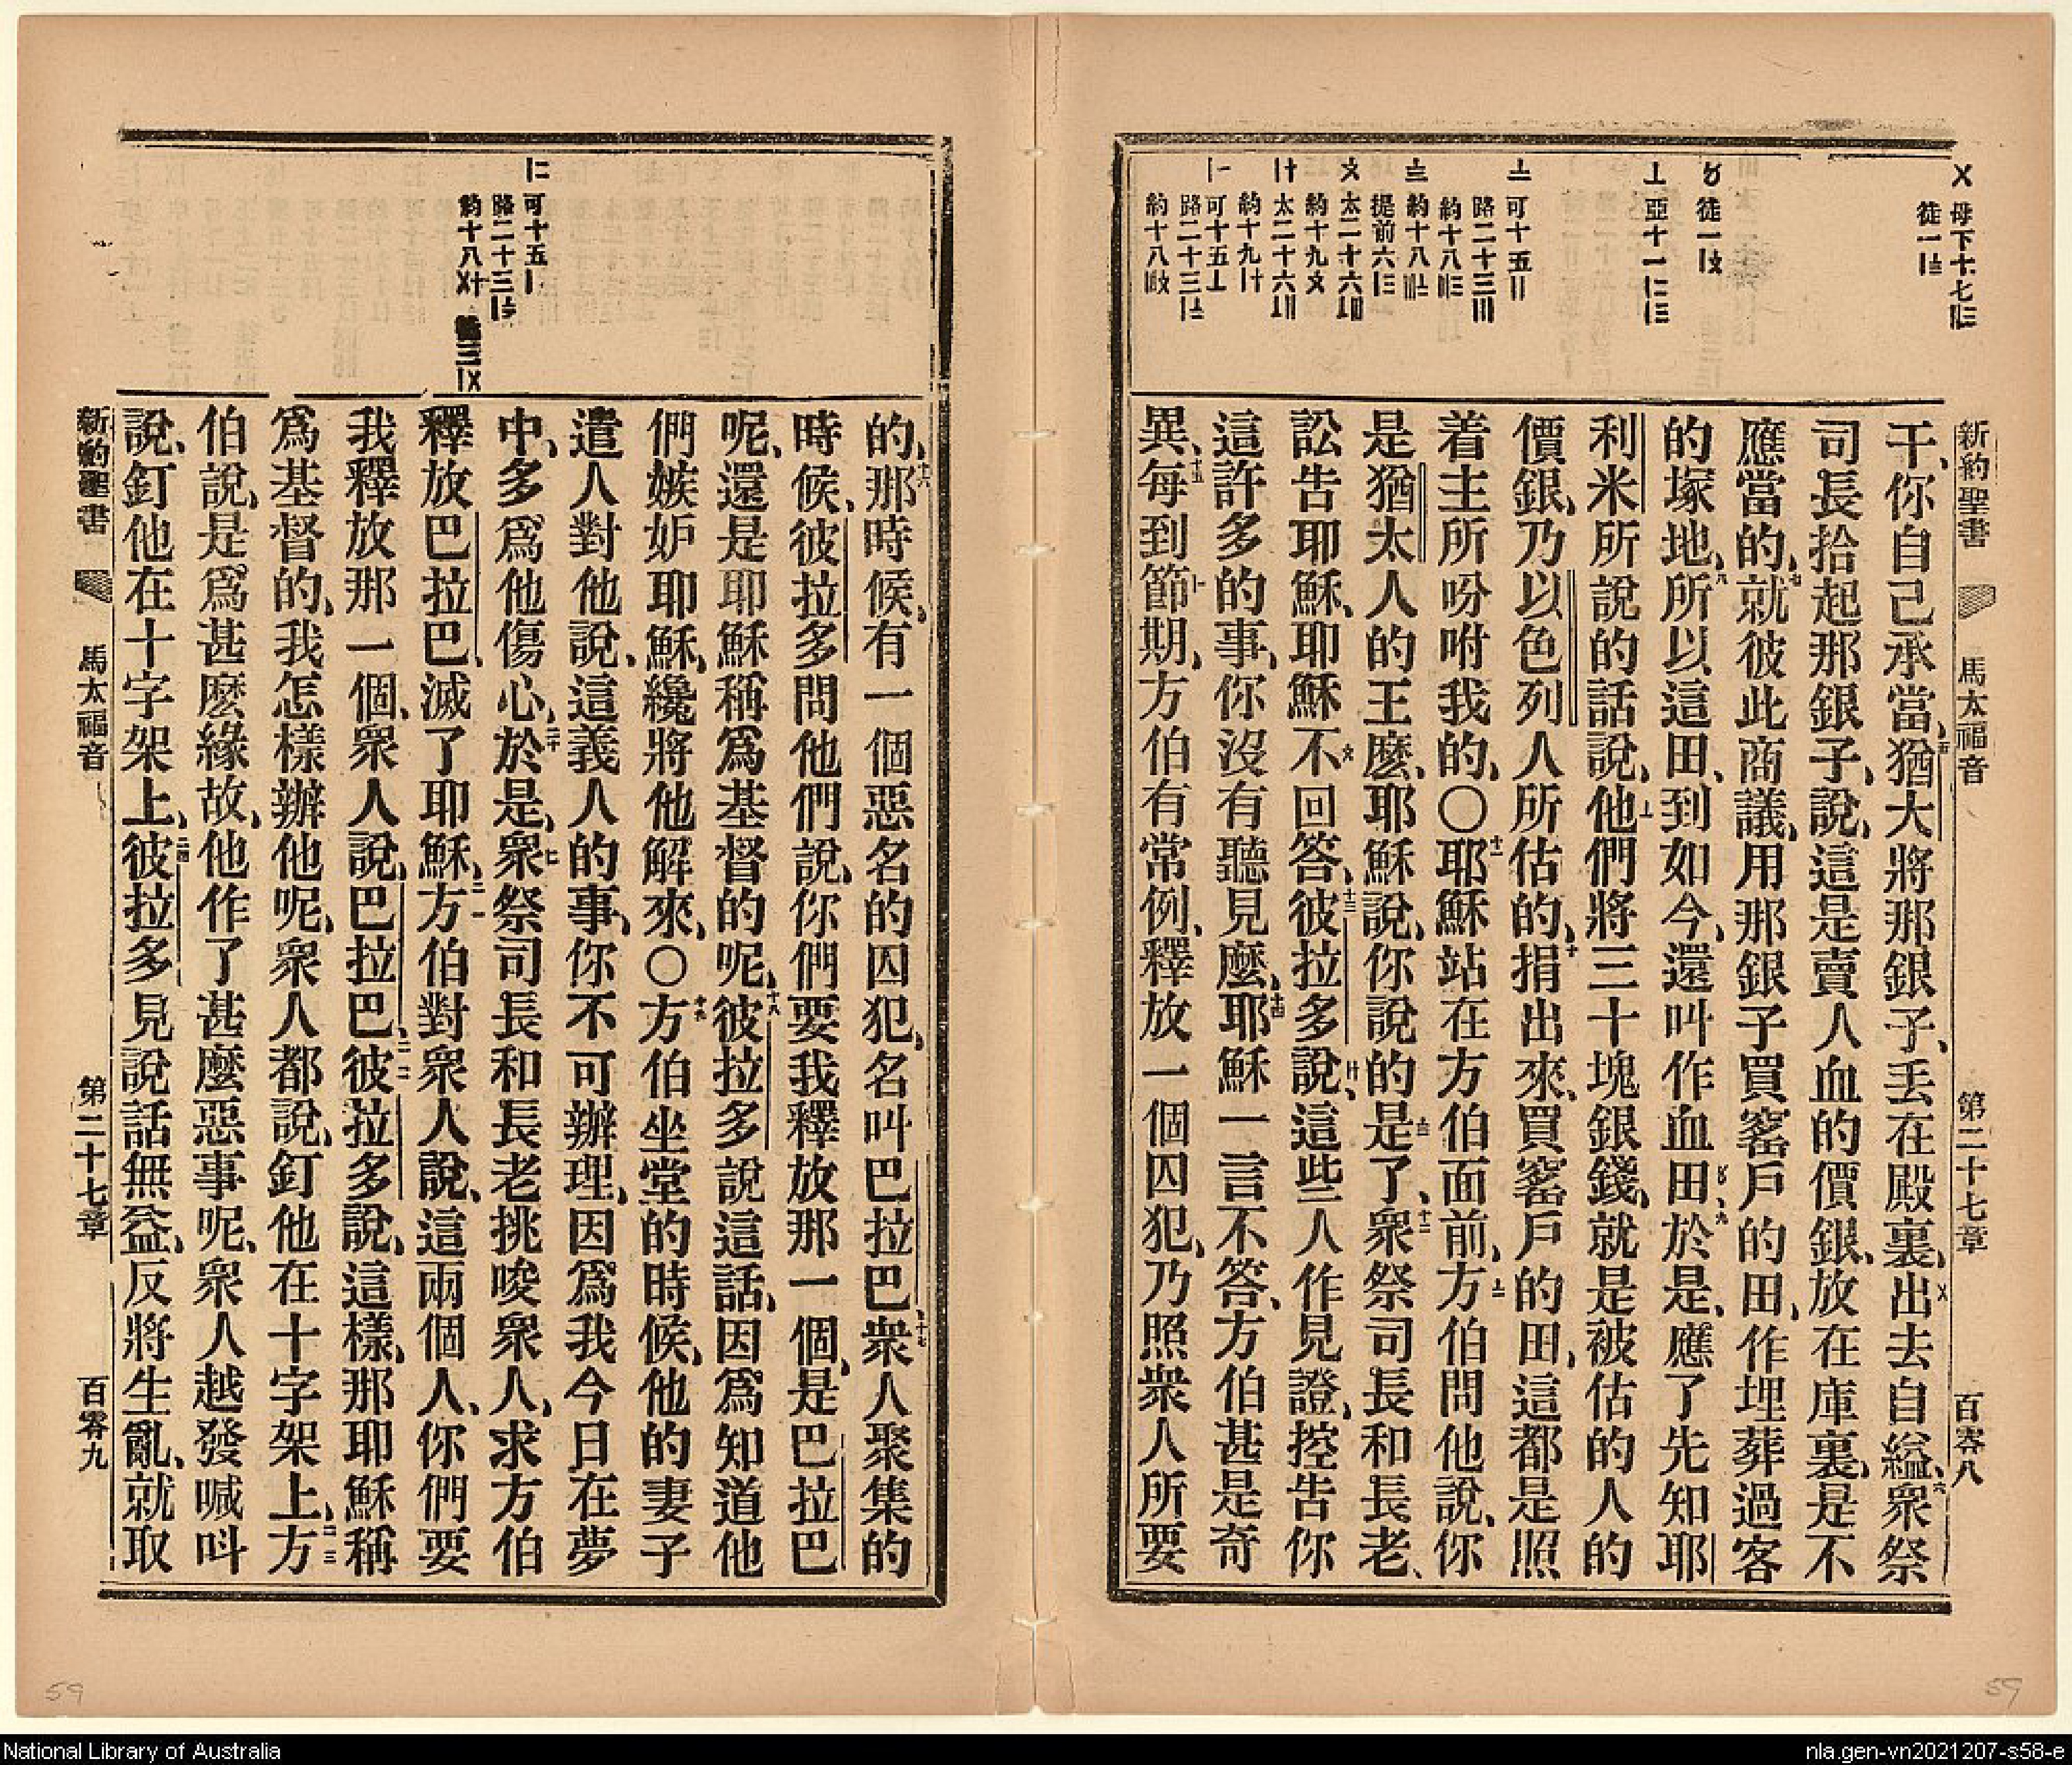 新約聖書 馬太福音 第二十七章 百零八
〤 母下十七
徒一
徒一
亞十一
可十五
路二十三
約十八
約十八
提前六
太二十六
約十九
太二十六
約十九
可十五
路二十三
約十八
干、你自己承當、猶大將那銀子、丟在殿裏、出去自縊、衆祭
司長拾起那銀子、說、這是賣人血的價銀、放在庫裏、是不
應當的、就彼此商議、用那銀子買窰戶的田、作埋葬過客
的塚地、所以這田、到如今、還叫作血田、於是、應了先知耶
利米所說的話說、他們將三十塊銀錢、就是被估的人的
價銀、乃以色列人所估的、捐出來、買窰戶的田、這都是照
着主所吩咐我的、〇耶穌站在方伯面前、方伯問他說、你
是猶太人的王麼、耶穌說、你說的是了、衆祭司長和長老、
訟告耶穌、耶穌不回答、彼拉多說、這些人作見證、控告你
這許多的事、你沒有聽見麼、耶穌一言不答、方伯甚是奇
異、每到節期、方伯有常例、釋放一個囚犯、乃照衆人所要
可十五
路二十三
約十八
的、那時候、有一個惡名的囚犯、名叫巴拉巴、衆人聚集的
時候、彼拉多問他們說、你們要我釋放那一個、是巴拉巴
呢、還是耶穌稱爲基督的呢、彼拉多說這話、因爲知道他
們嫉妒耶穌、纔將他解來、〇方伯坐堂的時候、他的妻子
遣人對他說、這義人的事、你不可辦理、因爲我今日在夢
中、多爲他傷心、於是、衆祭司長和長老挑唆衆人、求方伯
釋放巴拉巴、滅了耶穌、方伯對衆人說、這兩個人、你們要
我釋放那一個、衆人說、巴拉巴、彼拉多說、這樣、那耶穌稱
爲基督的、我怎樣辦他呢、衆人都說、釘他在十字架上、方
伯說、是爲甚麼緣故、他作了甚麼惡事呢、衆人越發喊叫
說、釘他在十字架上、彼拉多見說話無益、反將生亂、就取
新約聖書 馬太福音 第二十七章 百零九
59
59
National Library of Australia
nla.gen-vn2021207-s58-e